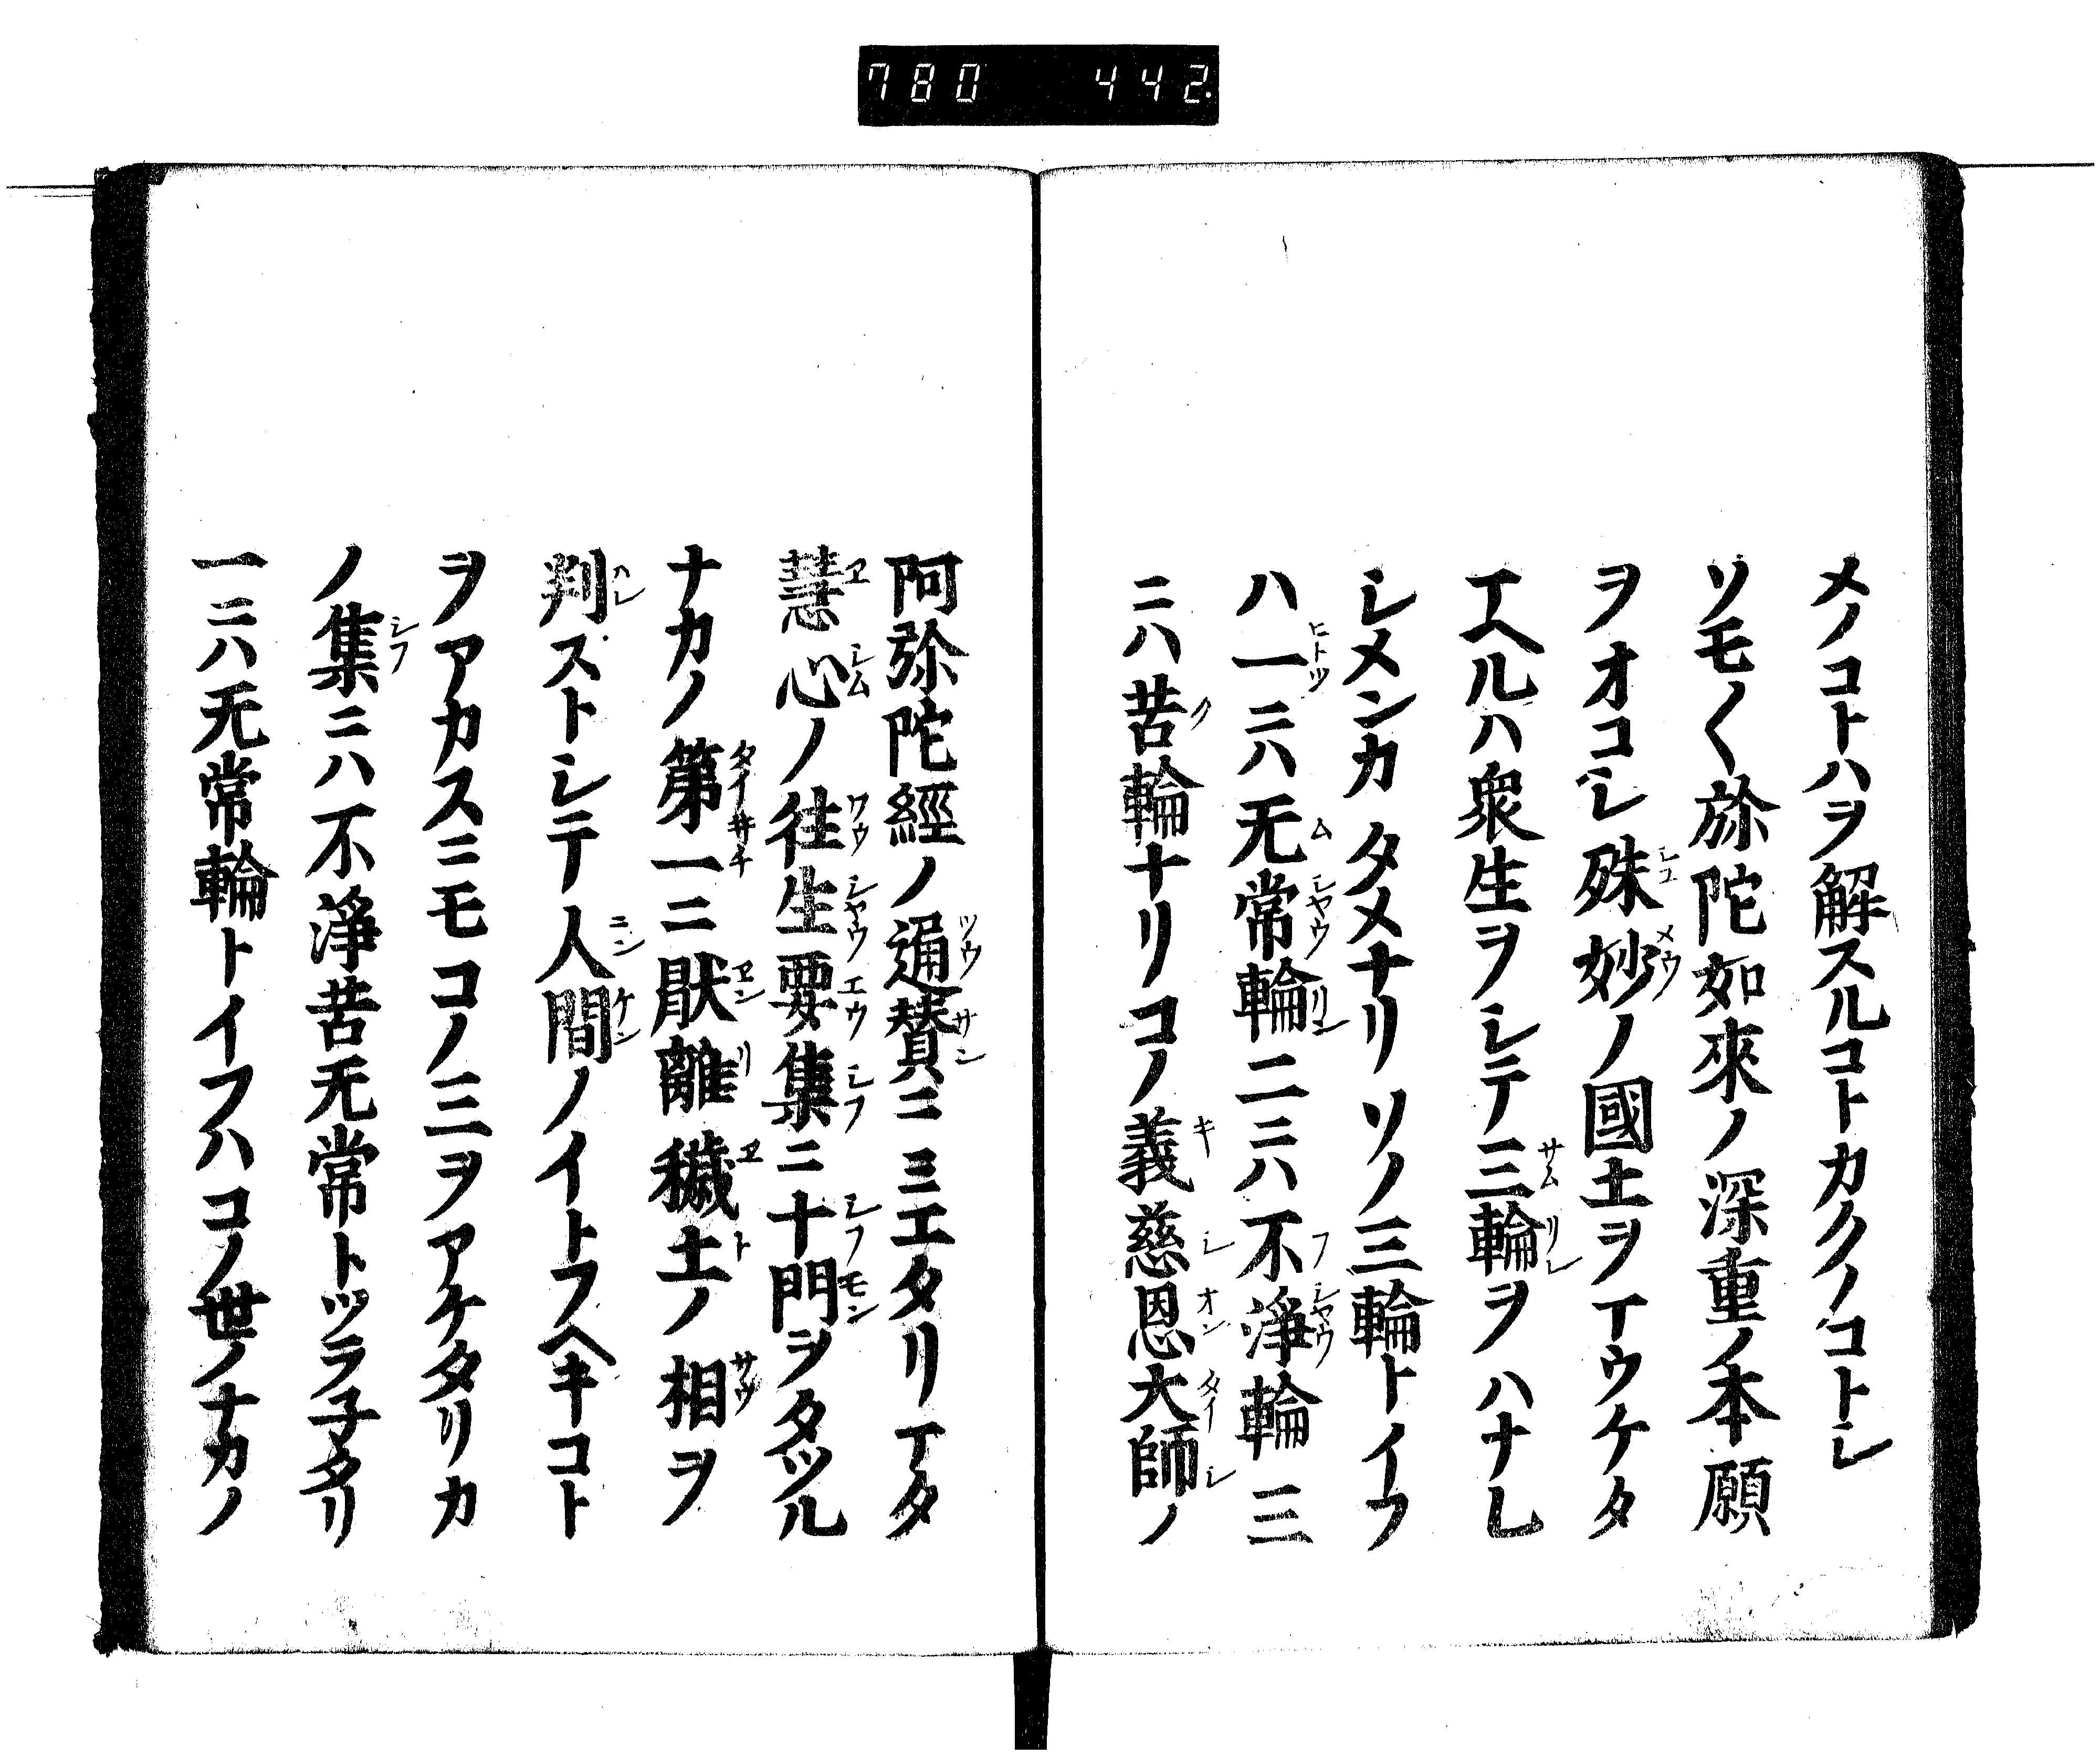 780 442
メノコトハヲ解スルコトカクノコトシ
ソモ〱弥陀如來ノ深重ノ本願
ヲオコシ殊妙ノ國土ヲマウケタ
マヘルハ衆生ヲシテ三輪ヲハナレ
シメンカタメナリソノ三輪トイフ
ハ一ニハ无常輪二ニハ不淨輪三
ニハ苦輪ナリコノ義慈恩大師ノ
阿弥陀經ノ通賛ニミエタリマタ
慧心ノ往生要集ニ十門ヲタツル
ナカノ第一ニ厭離穢土ノ相ヲ
判ストシテ人間ノイトフヘキコト
ヲアカスニモコノ三ヲアケタリカ
ノ集ニハ不淨苦无常トツラ子タリ
一ニハ无常輪トイフハコノ世ノナカノ